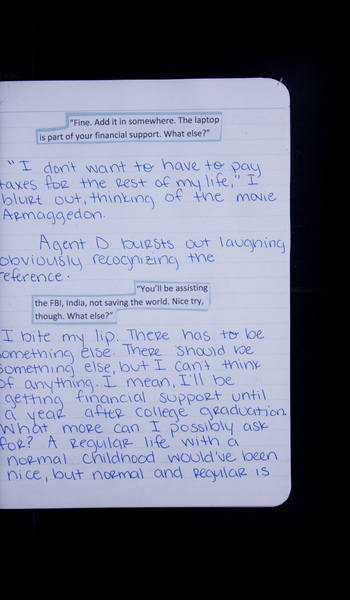 "Fine. Add it in somewhere. The laptop
is part of your financial support. What else?"
"I don't want to have to pay
taxes for the rest of my life," I
blurt out, thinking of the movie
Armaggedon.
Agent D bursts out laughing
obviously recognizing the
reference.
"You'll be assisting
the FBI, India, not saving the world. Nice try,
though. What else?"
I bite my lip. There has to be
omething else. There should be
something else, but I can't think
of anything. I mean, I'll be
getting financial support until
a year after college graduation.
What more can I possibly ask
for? A regular life with a
normal childhood would've been
nice, but normal and regular is